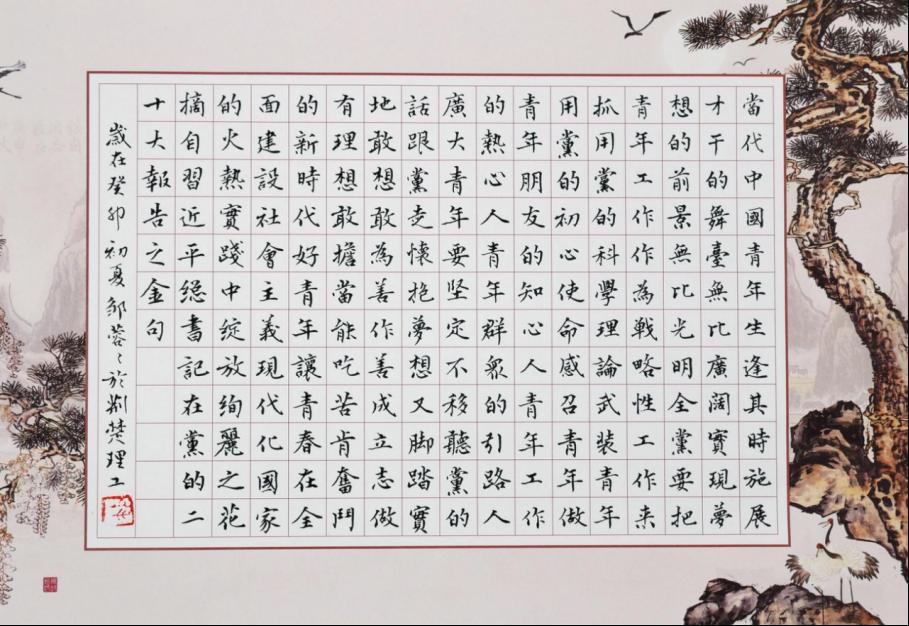 當代中國青年生逢其時施展
才干的舞臺無比廣闊實現夢
想的前景無比光明全黨要把
青年工作作為戰略性工作来
抓用黨的科學理論武装青年
用黨的初心使命感召青年做
青年朋友的知心人青年工作
的熱心人青年群眾的引路人
廣大青年要坚定不移聽黨的
話跟黨走懷抱夢想又脚踏實
地敢想敢為善作善成立志做
有理想敢擔當能吃苦肯奮鬥
的新時代好青年讓青春在全
面建設社會主義現代化國家
的火熱實踐中绽放绚麗之花
摘自習近平總書記在黨的二
十大報告之金句
歲在癸卯初夏邹蓉〻於荆楚理工